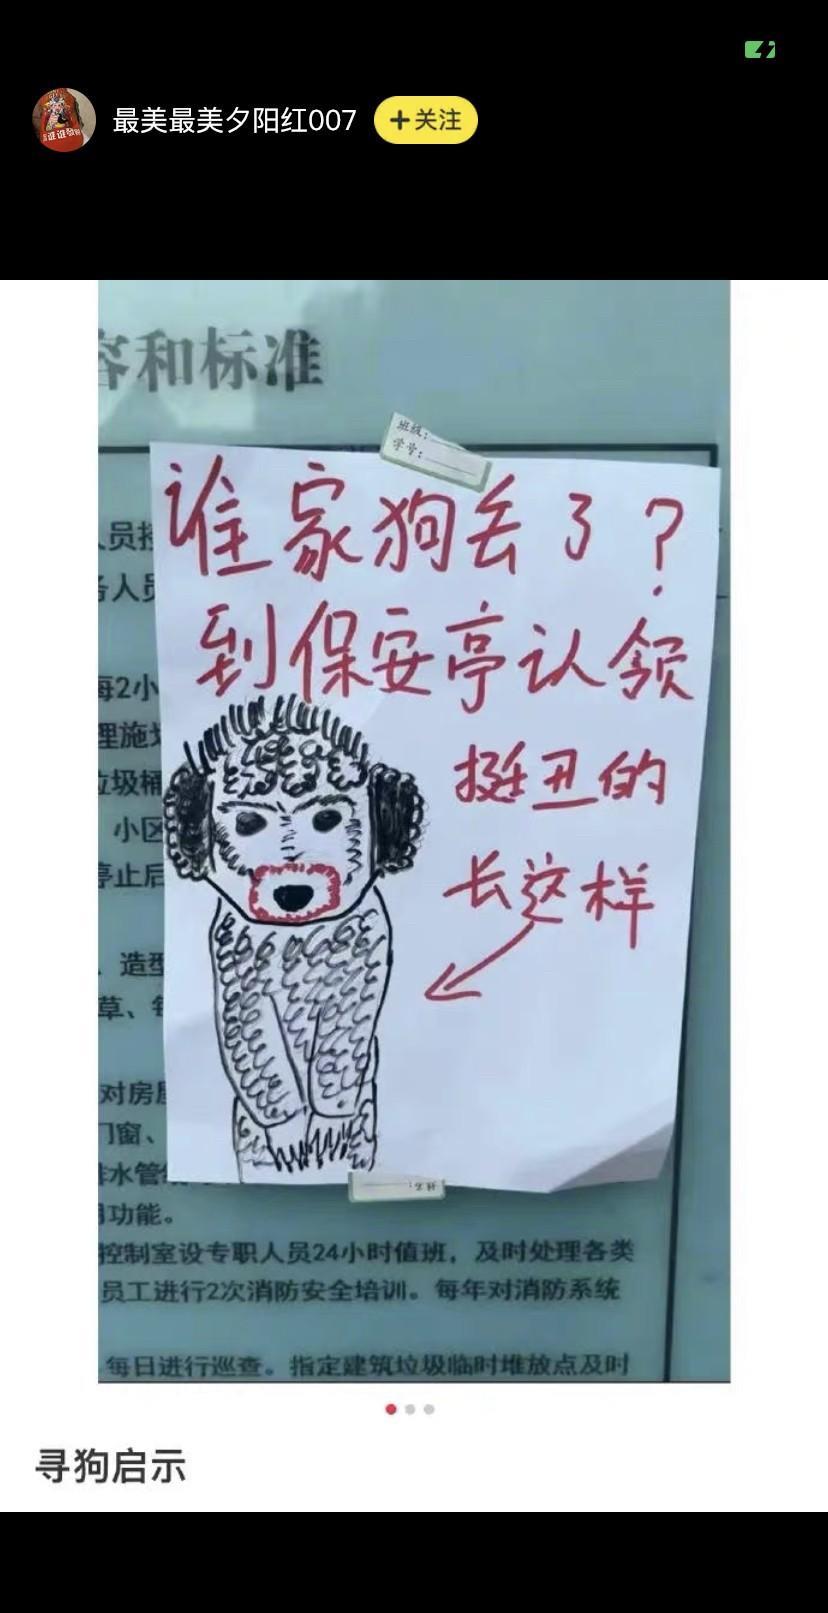 最美最美夕阳红007
+关注
容和标准
班级:
学号:
谁家狗丢了?
到保安亭认领
挺丑的
长这样
人员
务人员
每2小
理施
垃圾桶
小区
停止后
、造型
草、每
对房屋
门窗、
排水管
功能。
控制室设专职人员24小时值班，及时处理各类
员工进行2次消防安全培训。每年对消防系统
每日进行巡查。指定建筑垃圾临时堆放点及时
姓名:
寻狗启示